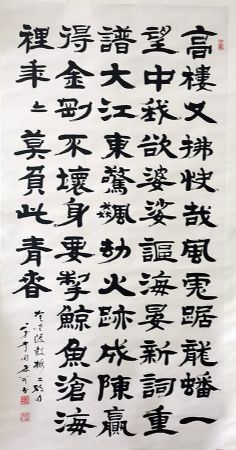 高樓又拂快哉風虎踞龍蟠一
望中我欲婆娑謳海晏新詞重
譜大江東驚飆劫火跡成陳贏
得金剛不壞身要掣鯨魚滄海
裡年〻莫負此青春
登金陵鼓樓二